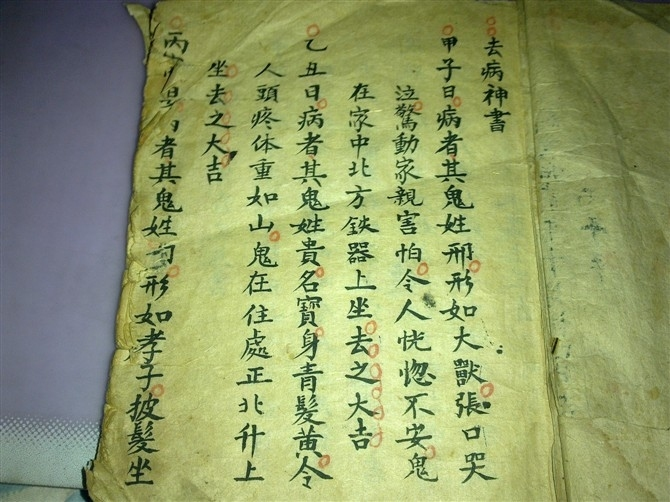 去病神書
甲子日病者其鬼姓邢形如大獸張口哭
泣驚動家親害怕令人恍惚不安鬼
在家中北方鉄器上坐去之大吉
乙丑日病者其鬼姓貴名寶身青髮黄令
人頭疼体重如山鬼在住處正北升上
坐去之大吉
丙寅日 者其鬼姓 形如孝子披髮坐